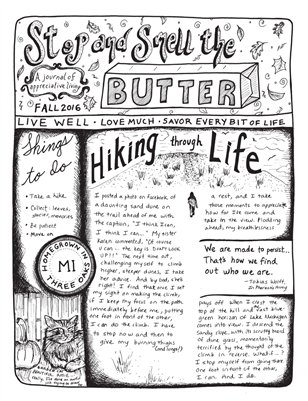 Stop and Smell the
BUTTER
A journal of
appreciative living
FALL 2016
LIVE WELL · LOVE MUCH · SAVOR EVERY BIT OF LIFE
Things
to do
• Take a hike.
• Collect: leaves,
stories, memories
• Be patient
• Move on
HOMEGROWN IN
MI
THREE OAKS
Hiking through Life
I posted a photo on Facebook of
a daunting sand dune on
the trail ahead of me with
the caption, "I think I can,
I think I can..." My sister
Karen commented, "Of course
U can - the key is DON'T LOOK
UP!!" The next time out,
challenging myself to climb
higher, steeper dunes, I take
her advice. And by God, she's
right! I find that once I set
my sight on making the climb,
if I keep my focus on the path
immediately before me, putting
one foot in front of the other,
I can do the climb. I have
to stop now and then to
give my burning thighs
(and lungs!)
a rest, and I take
those moments to appreciate
how far I've come and
take in the view. Plodding
ahead, my breathlessness
We are made to persist...
That's how we find
out who we are.
- Tobias Wolff,
In Pharaoh's Army
pays off when I crest the
top of the hill and vast blue-
green horizon of Lake Michigan
comes into view. I descend the
Sandy slope, with its scruffy beard
of dune grass, momentarily
terrified by the thought of the
climb in reverse. What if...?
I stop myself from going there.
One foot in front of the other,
I can. I do.